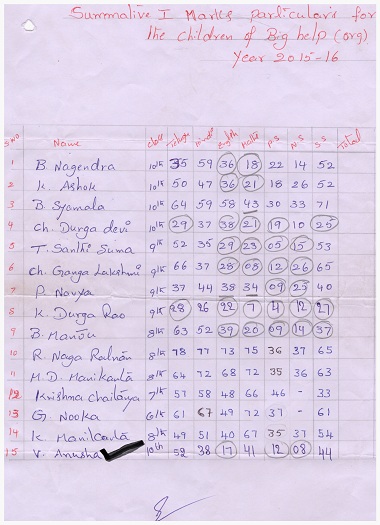 Summative I Marks particulars for
the children of Big help (org)
Year 2015-16
S.NO Name class Telugu Hindi English Maths P.S N.S S.S Total
1 B. Nagendra 10th 35 59 36 18 22 14 52
2 K. Ashok 10th 50 47 36 21 18 26 52
3 B. Syamala 10th 64 59 58 43 30 33 71
4 Ch. Durga devi 10th 29 37 38 21 19 10 25
5 T. Santhi Suma 9th 52 35 29 23 05 15 53
6 Ch. Ganga Lakshmi 9th 66 37 28 08 12 26 65
7 P. Navya 9th 37 44 38 34 09 25 40
8 K. Durga Rao 9th 28 26 22 7 4 12 27
9 B. 8th 63 52 39 20 09 14 37
10 R. Naga Ratnam 8th 78 77 73 75 36 37 65
11 M.D. Manikanta 8th 64 72 68 72 35 36 63
12 Krishna chaitanya 7th 57 58 48 66 46 - 33
13 G Nooka 6th 61 67 49 72 37 - 61
14 K. Manikanta 8th 49 51 40 67 35 37 54
15 V. Anusha 10th 52 38 17 41 12 08 44